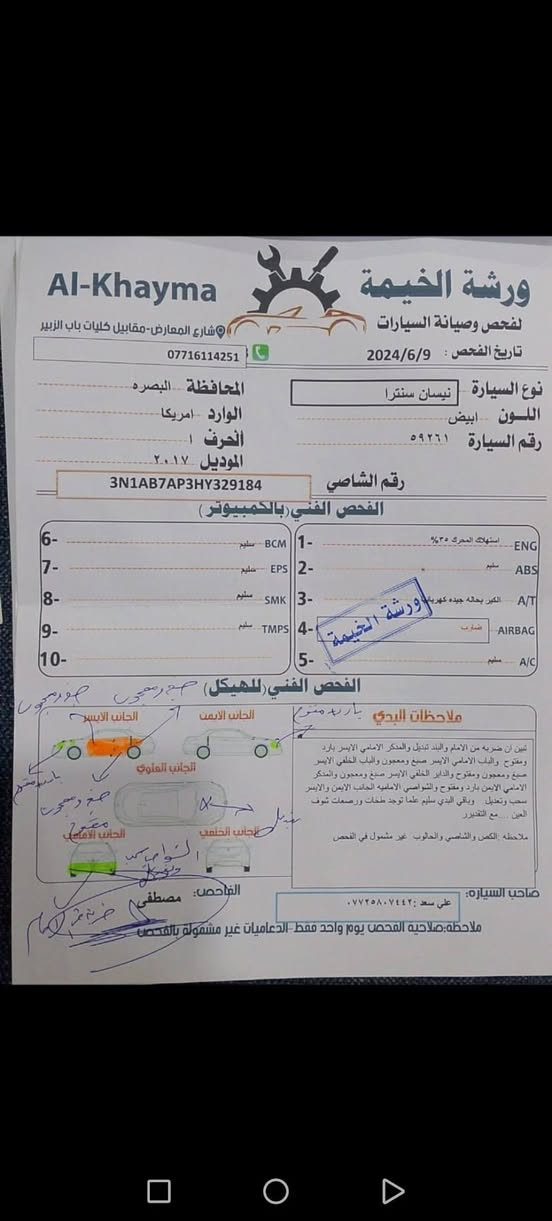 Al-Khayma
ورشة الخيمة
لفحص وصيانة السيارات
شارع المعارض-مقابيل كليات باب الزبير
تاريخ الفحص : 2024/6/9
07716114251
نوع السيارة نيسان سنترا
المحافظة البصره
اللـون ابيض
الوارد امريكا
رقم السيارة ٥٩٢٦١
الحرف ا
الموديل ٢٠١٧
رقم الشاصي 3N1AB7AP3HY329184
الفحص الفني (بالكمبيوتر)
1- استهلاك المحرك ٣٥% ENG
2- سليم ABS
3- الكير بحاله جيده كهربائيا A/T
4- ضارب AIRBAG
5- سليم A/C
6- سليم BCM
7- سليم EPS
8- سليم SMK
9- سليم TMPS
10-
ورشة الخيمة
الفحص الفني (للهيكل)
صبغ ومعجون
صبغ ومعجون
بارد مفتوح
الجانب الايسر
الجانب الايمن
الجانب العلوي
صبغ ومعجون
مفتوح
تبديل
الجانب الامامي
الجانب الخلفي
الشواصي سحب
وتعديل
ملاحظات البدي
تبين ان ضربه من الامام والبند تبديل والمدكر الامامي الايسر بارد
ومفتوح والباب الامامي الايسر صبغ ومعجون والباب الخلفي الايسر
صبغ ومعجون ومفتوح والداير الخلفي الايسر صبغ ومعجون والمدكر
الامامي الايمن بارد ومفتوح والشواصي الاماميه الجانب الايمن والايسر
سحب وتعديل وباقي البدي سليم علما توجد طخات ورصعات شوف
العين ....مع التقدير
ملاحظه :الكص والشاصي والحالوب غير مشمول في الفحص
صاحب السياره:
علي سعد :٠٧٧٢٥٨٠٧٤٤٢
الفاحص: مصطفى
ملاحظة:صلاحية الفحص يوم واحد فقط-الدعاميات غير مشمولة بالفحص